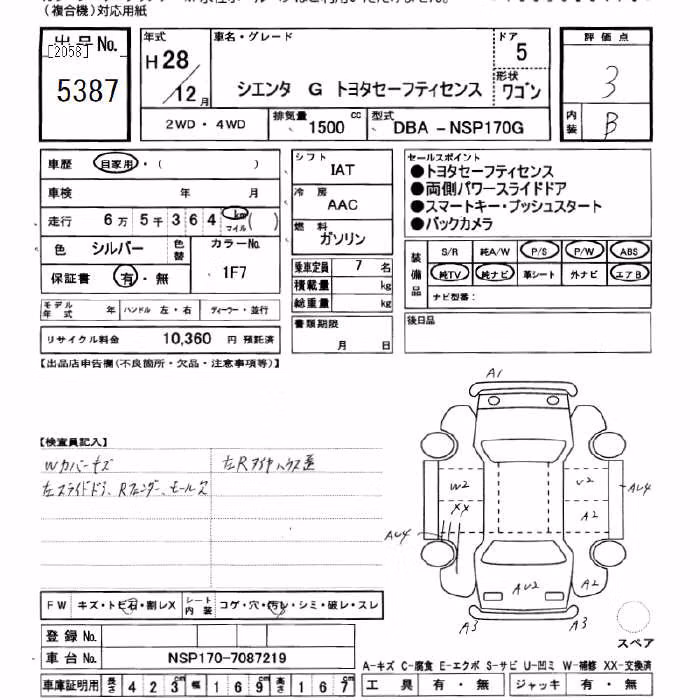 (複合機)対応用紙
出品No.
[2058]
5387
年式
H28/12月
車名・グレード
シエンタ G トヨタセーフティセンス
ドア
5
形状
ワゴン
評価点
3
内装
B
2WD・4WD
排気量 1500 cc
型式 DBA-NSP170G
車歴 自家用・( )
車検 年 月
走行 6万5千364 km マイル ( )
色 シルバー 色替
カラーNo. 1F7
保証書 有・無
モデル年式 年 ハンドル 左・右 ディーラー・並行
リサイクル料金 10,360 円 預託済
シフト
IAT
冷房
AAC
燃料
ガソリン
乗車定員 7 名
積載量 kg
総重量 kg
書類期限
月 日
セールスポイント
●トヨタセーフティセンス
●両側パワースライドドア
●スマートキー・プッシュスタート
●バックカメラ
装備品
S/R 純A/W P/S P/W ABS
純TV 純ナビ 革シート 外ナビ エアB
ナビ型番:
後日品
【出品店申告欄(不良箇所・欠品・注意事項等)】
【検査員記入】
Wカバーキズ
左スライドドア、Rフェンダー、モールズ
左Rタイヤハウス歪
A1
W2
XX
U2
A2
AU4
AU4
AU2
A2
A3
A3
スペア
FW キズ・トビ石・割レX
シート内装 コゲ・穴・汚レ・シミ・破レ・スレ
登録No.
車台No. NSP170-7087219
車庫証明用 長さ 423cm 幅 169cm 高さ 167cm
A-キズ C-腐食 E-エクボ S-サビ U-凹ミ W-補修 XX-交換済
工具 有・無 ジャッキ 有・無